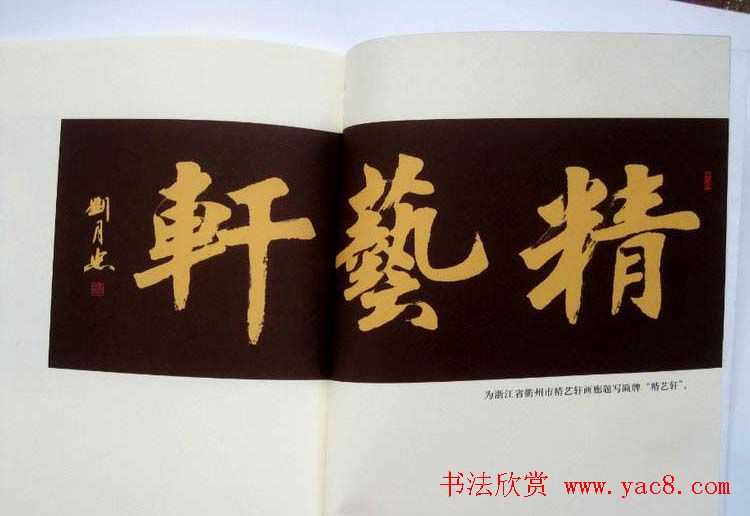 精藝軒
劉月
为浙江省衢州市精艺轩画廊题写匾牌“精艺轩”。
书法欣赏 www.yac8.com